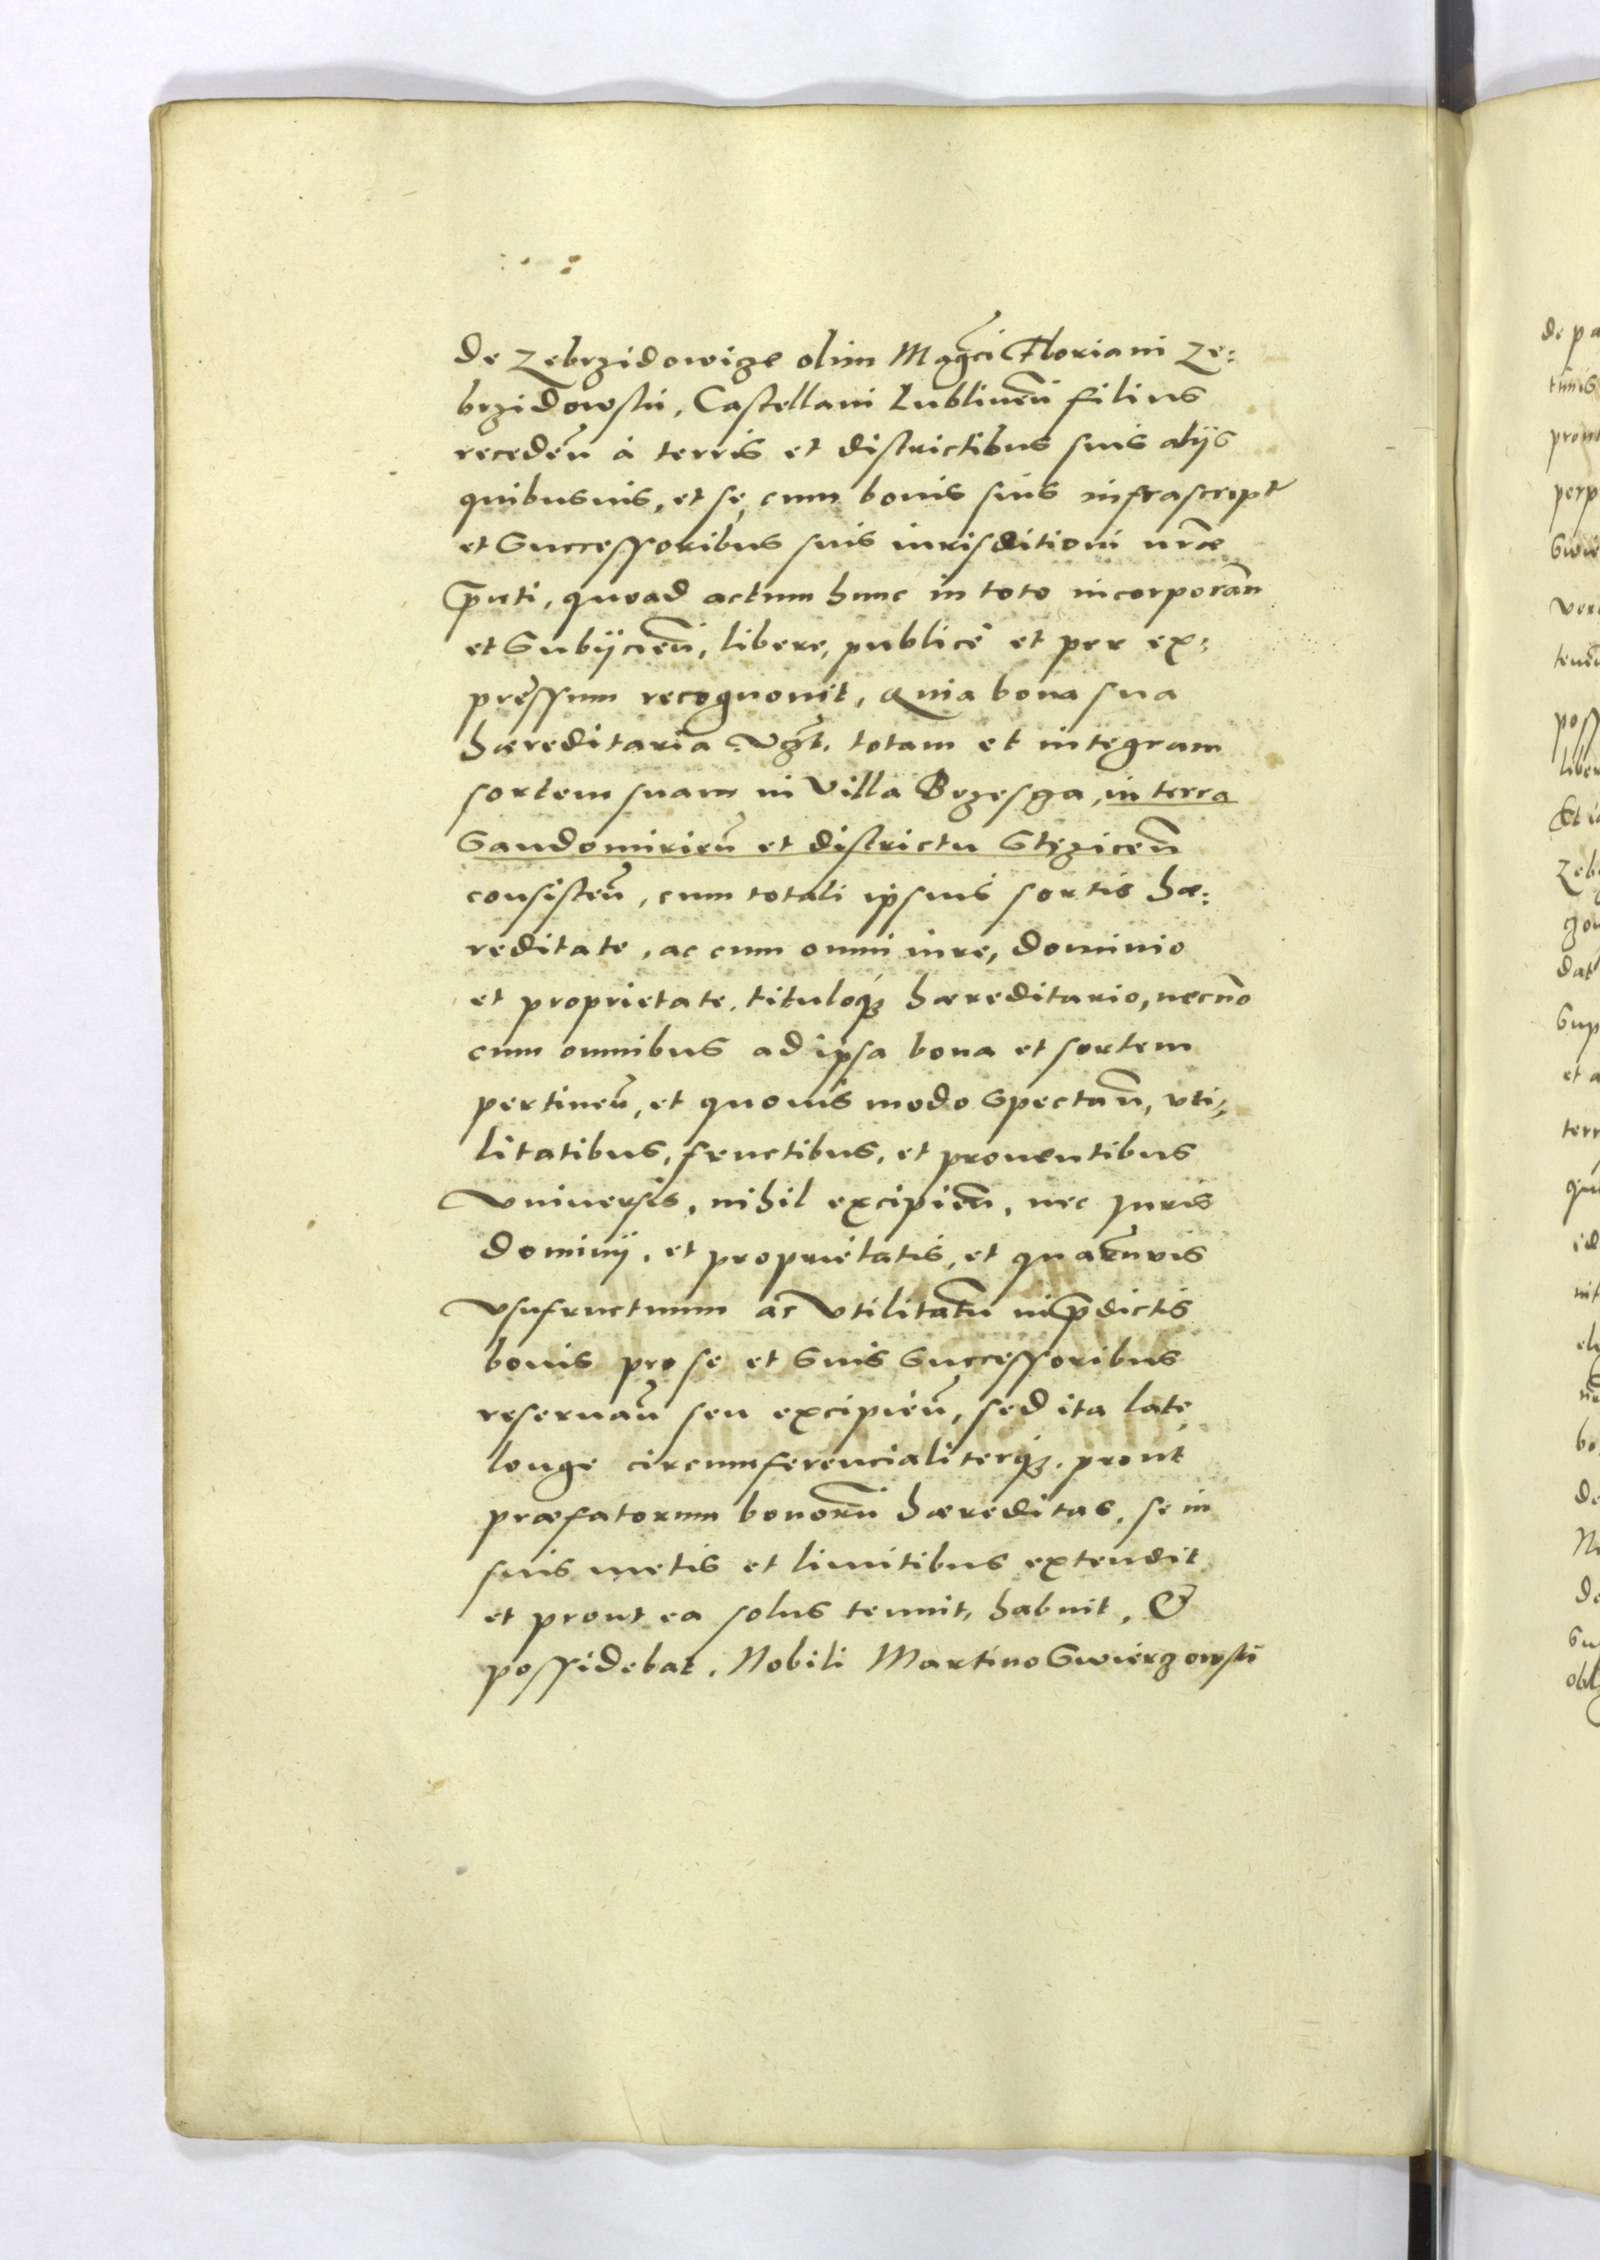 de Zebrzidowize olim Mag͞ci Floriani Ze:
brzidowski, Castellani Lublineñ filius
recedeñ á terris et districtibus suis alijs
quibusuis, et se, cum bonis suis infrascript
et Successoribus suis iurisditioni nr̃ae
p̃nti, quoad actum hunc in toto incorporañ
et Subijcieñ, libere, publicé et per ex:
pressum recognouit, Quia bona sua
hæreditaria vz̃t. totam et integram
sortem suam in Villa Brzesga, in terra
Sandomirieñ et districtu Stęziceñ
consisteñ, cum totali ipsius sortis hæ:
reditate, ac cum omni iure, dominio
et proprietate, tituloq́ꝫ hæreditario, necno
cum omnibus ad ipsa bona et sortem
pertineñ, et quouis modo Spectañ, vti:
litatibus, fructibus, et prouentibus
Vniuersis, nihil excipieñ, nec Juris
dominij, et proprietatis, et quar̃umuis
Vsufructuum ac Vtilitatũ in p̃dictis
bonis pro se et Suis Successoribus
reseruañ seu excipieñ, sed ita late
longe circumferencialiterq́ꝫ, prout
præfatorum bonorũ hæreditas, se in
suis metis et limitibus extendit
et prout ea solus tenuit, habuit, &
possidebat, Nobili Martino Swierzowski
de pa